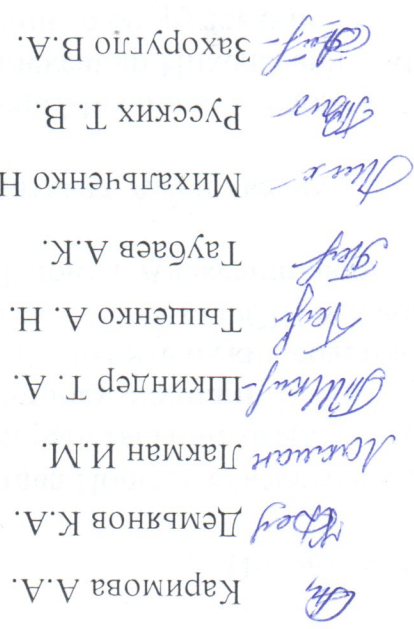 Каримова А.А.
Демьянов К.А.
Лакман И.М. Лакман
Шкиндер Т. А.
Тыщенко А. Н.
Таубаев А.К.
Михальченко Н
Русских Т. В.
Захоругло В.А.